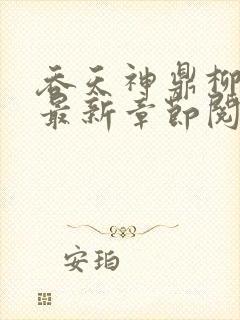 吞天神鼎柳
最新章节阅
安珀